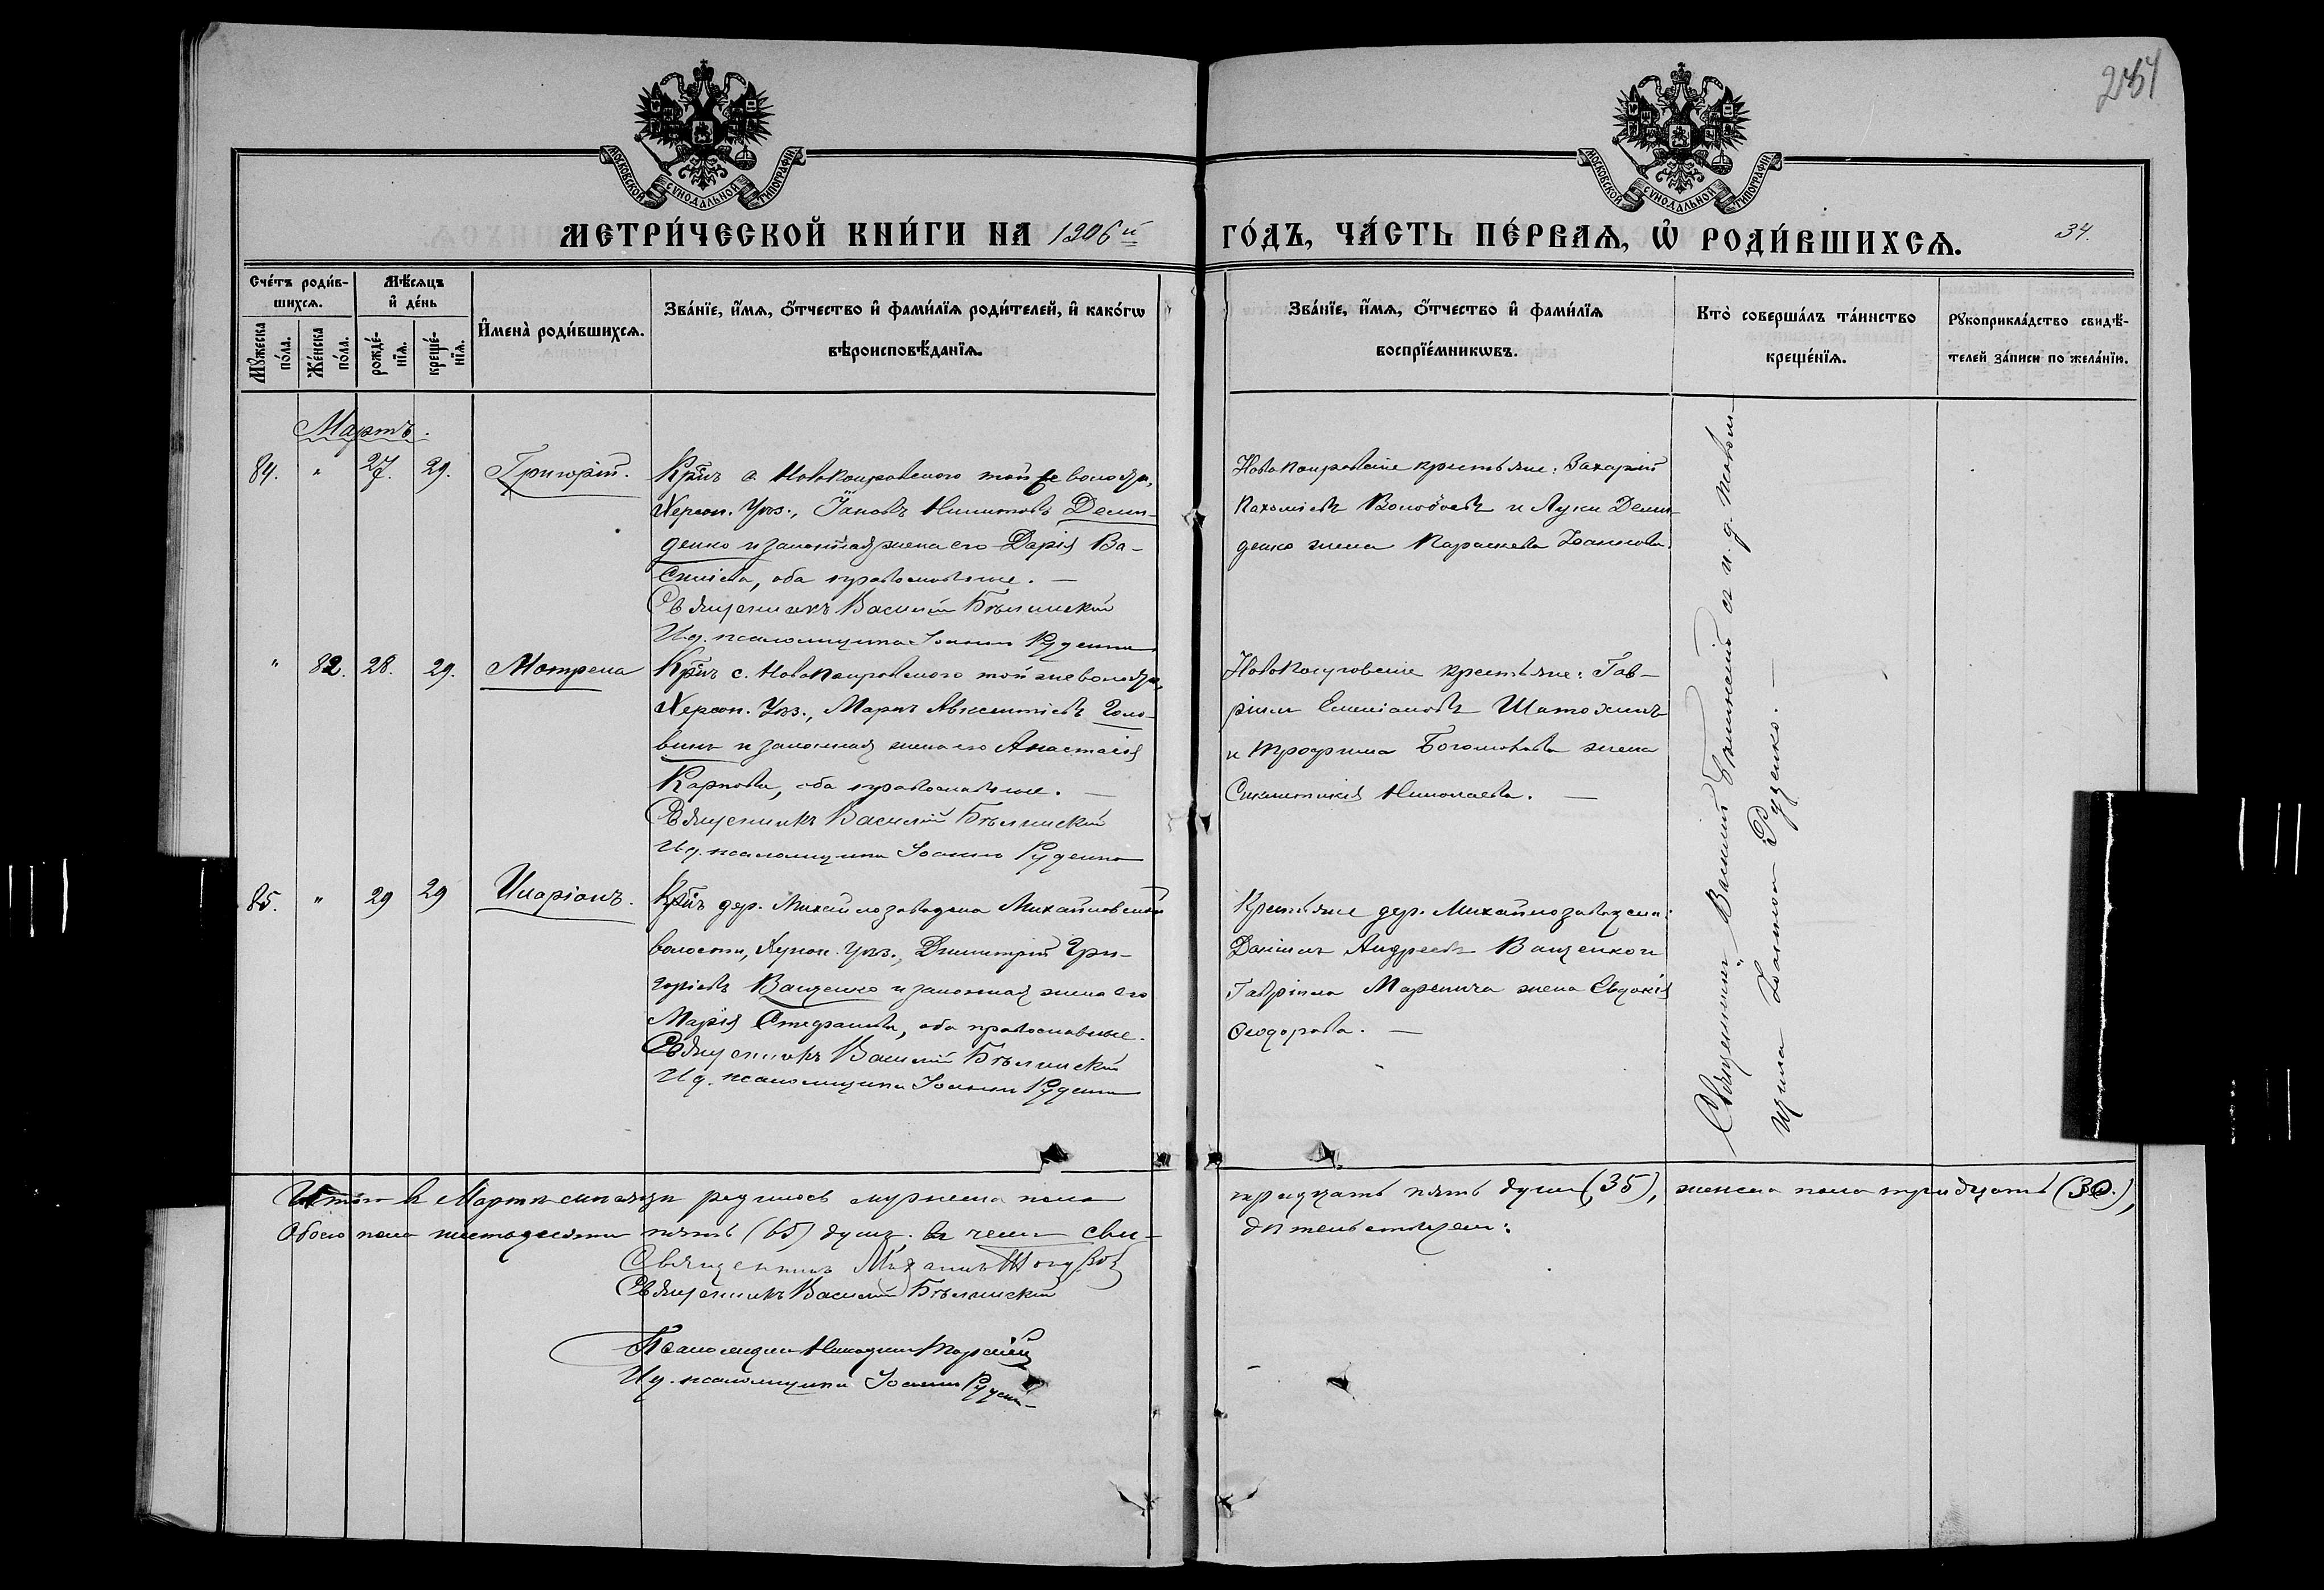 254
МОСКОВСКОЙ СѴНОДАЛЬНОЙ ТИПОГРАФІИ
МОСКОВСКОЙ СѴНОДАЛЬНОЙ ТИПОГРАФІИ
МЕТРИ́ЧЕСКОЙ КНИ́ГИ НА 1906й
ГО́ДЪ, ЧА́СТЬ ПЕ́РВАѦ, Ѡ҆ РОДИ́ВШИХСѦ. 34.
Сче́тъ роди́в-
шихсѧ.
Мꙋ́жеска по́ла.
Же́нска по́ла.
Мѣ́сѧцъ
и҆ де́нь
рожде́-
нїѧ.
креще́-
нїѧ.
И҆мена̀ роди́вшихсѧ.
Зва́нїе, и҆́мѧ, ѻ҆́тчество и҆ фами́лїѧ роди́телей, и҆ како́гѡ
вѣроисповѣ́данїѧ.
Зва́нїе, и҆́мѧ, ѻ҆́тчество и҆ фами́лїѧ
воспрїе́мникѡвъ.
Кто̀ соверша́лъ та́инство
креще́нїѧ.
Рꙋкоприкла́дство свидѣ́-
телей за́писи по жела́нїю.
Мартъ.
84. " 27. 29. Григорій.
Кр-нъ с. Новопокровскаго той же волости,
Херсон. Уѣз., Іаковъ Никитовъ Деми-
денко и законная жена его Дарія Ва-
силіева, оба православные. —
Священникъ Василій Бѣлинскій
И.д. псаломщика Іоаннъ Руденко
Новопокровскіе крестьяне: Захарій
Пахоміевъ Волобоевъ и Луки Деми-
денко жена Параскева Іоаннова.
" 82. 28. 29. Мотрена
Кр-нъ с. Новопокровскаго той же волости,
Херсон. Уѣз., Маркъ Авксентіевъ Голо-
винъ и законная жена его Анастасія
Карпова, оба православные. —
Священникъ Василій Бѣлинскій
И.д. псаломщика Іоаннъ Руденко
Новопокровскіе крестьяне: Гав-
ріилъ Емиліановъ Шатохинъ
и Трофима жена
Синклитикія Николаева. —
85. " 29 29 Иларіонъ.
Кр-нъ дер. Михайлозаводска Михайловской
волости, Херсон. Уѣз., Димитрій Гри-
горіевъ Ващенко и законная жена его
Марія Стефанова, оба православные.
Священникъ Василій Бѣлинскій
И.д. псаломщика Іоаннъ Руденко
Крестьяне дер. Михайлозаводска:
Даніилъ Андреевъ Ващенко и
Гавріила жена Евдокія
Ѳеодорова. —
Священникъ Василій Бѣлинскій и и. д. псалом-
щика Іоаннъ Руденко. —
Итого въ Мартѣ мѣсяцѣ родилось мужеска пола
тридцать пять душъ (35), женска пола тридцать (30.),
обоего пола шестьдесятъ пять (65) душъ. въ чемъ сви-
дѣтельствуемъ:
Священникъ Михаилъ
Священникъ Василій Бѣлинскій
Псаломщикъ Никодимъ
И.д. псаломщика Іоаннъ Руденко